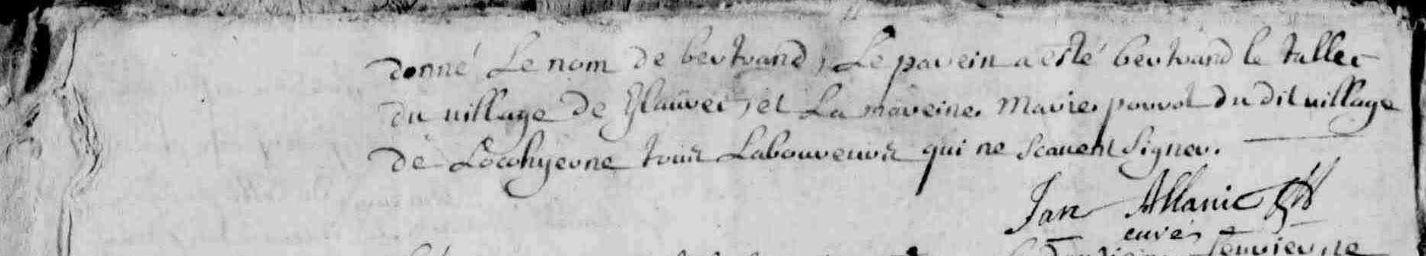 donné Le nom de bertrand, Le parein a esté bertrand le taller
du uillage de , et La mareine. Marie porrot du dit uillage
de Locohyerne tous Laboureurs qui ne scauent signer.
Jan Allanic
curé.